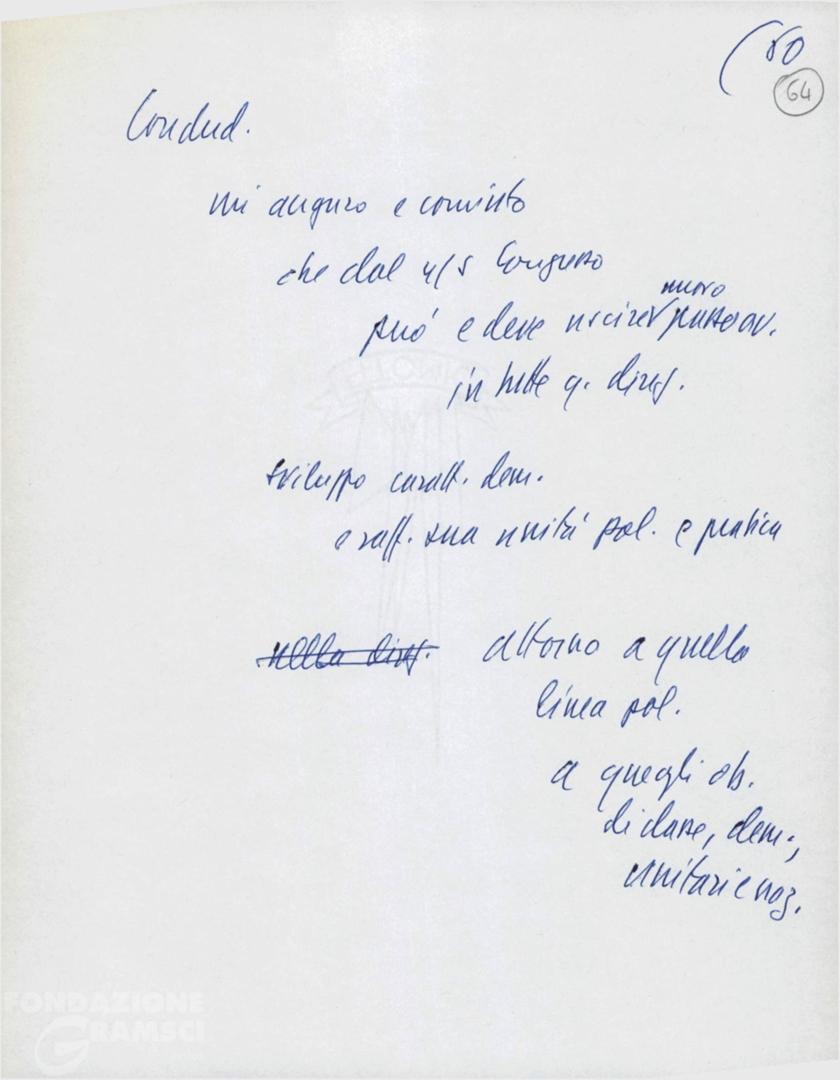 (60
64
Conclud.
mi auguro e convinto
che dal vs Congresso
nuovo
può e deve uscire passo av.
in tutte q. direz.
sviluppo caratt. dem.
e raff. sua unità pol. e pratica
nella direz. attorno a quella
linea pol.
a quegli ob.
di classe, dem.,
unitari e naz.
FONDAZIONE
GRAMSCI